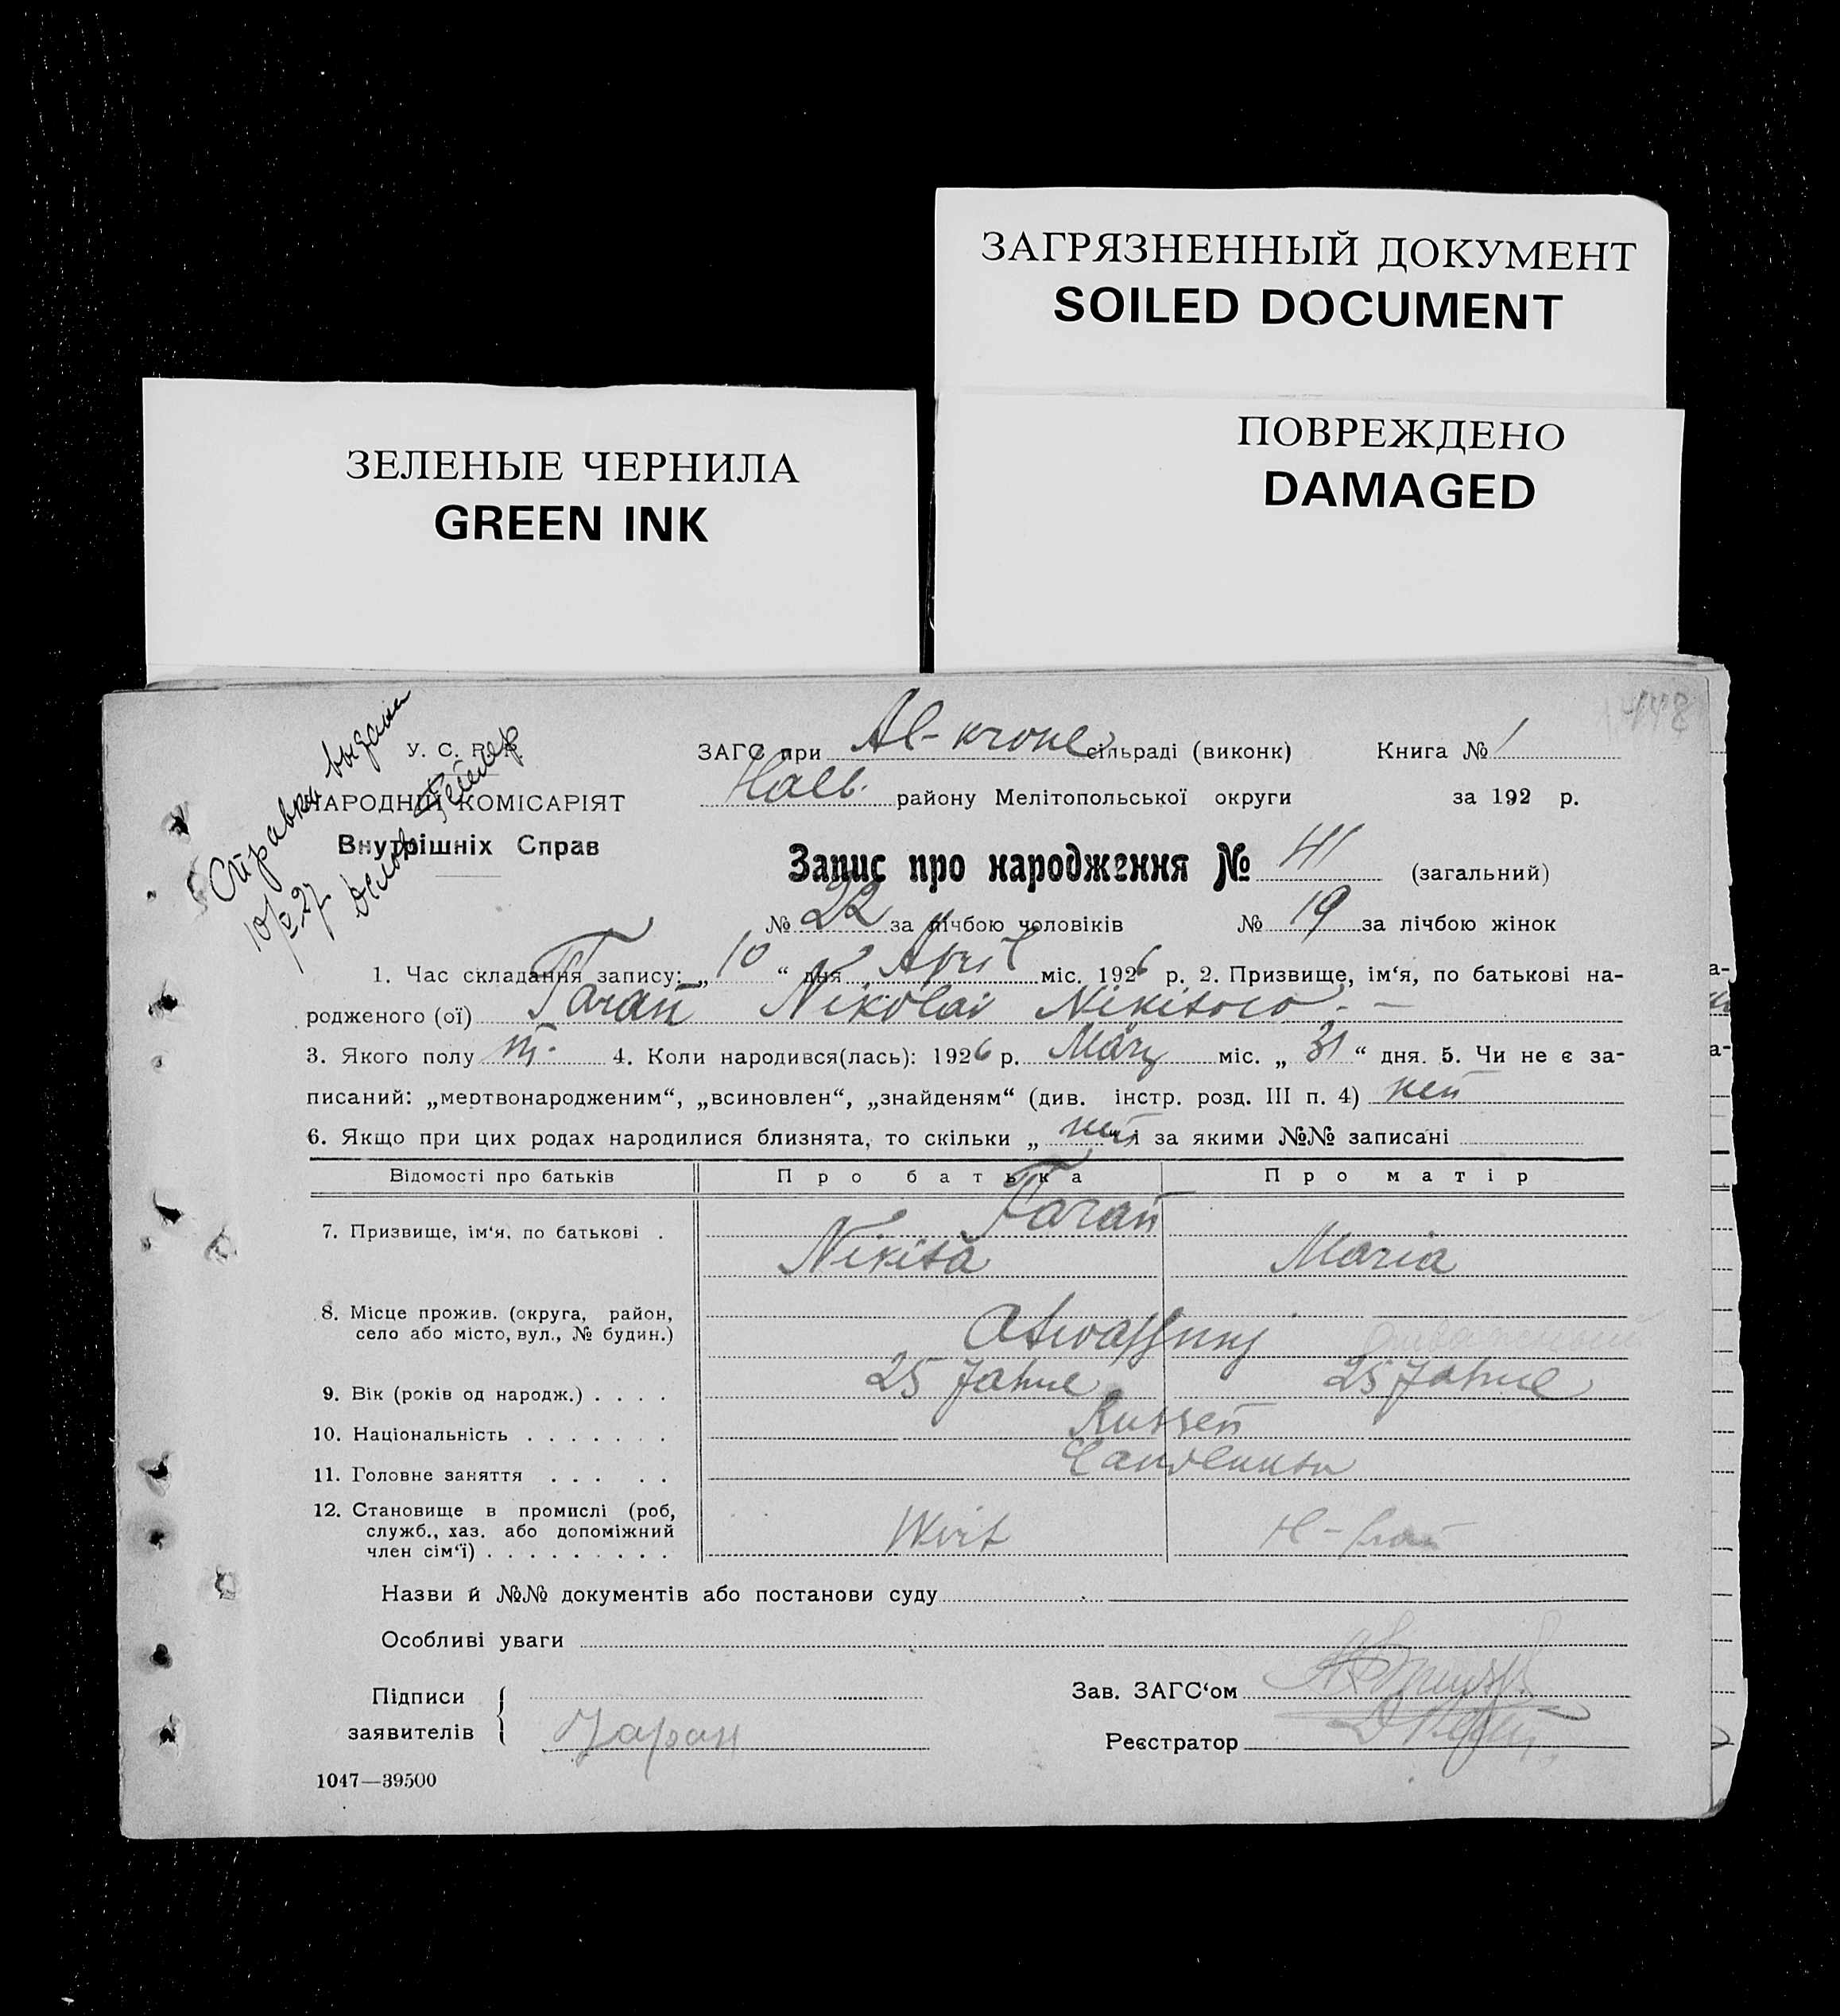 ЗАГРЯЗНЕННЫЙ ДОКУМЕНТ
SOILED DOCUMENT
ЗЕЛЕНЫЕ ЧЕРНИЛА
GREEN INK
ПОВРЕЖДЕНО
DAMAGED
448
Справки выдана
10/ 27
У. С. Р. Р.
НАРОДНІЙ КОМІСАРІЯТ
Внутрішніх Справ
ЗАГС при Al-krone сільраді (виконк) Книга № 1
Halb. району Мелітопольської округи за 192 р.
Запис про народження № 41 (загальний)
№ 22 за лічбою чоловіків № 19 за лічбою жінок
1. Час складання запису: „ 10 “ дня April міс. 1926 р. 2. Призвище, ім‘я, по батькові на-
родженого (ої) Taran Nikolai Nikitowo
3. Якого полу m. 4. Коли народився(лась): 1926 р. März міс. „ 31 “ дня. 5. Чи не є за-
писаний: „мертвонародженим“, „всиновлен“, „знайденям“ (див. інстр. розд. III п. 4) nein
6. Якщо при цих родах народилися близнята, то скільки „ nein і за якими №№ записані
Відомості про батьків Про батька Про матір
7. Призвище, ім‘я, по батькові . Taran
Nikita Maria
8. Місце прожив. (округа, район,
село або місто, вул., № будин.)
9. Вік (років од народж.) . . . . 25 Jahre 25 Jahre
10. Національність . . . . . . . Russen
11. Головне заняття . . . . .
12. Становище в промислі (роб,
служб., хаз. або допоміжний
член сім‘ї) . . . . . . . . . Wirt H-frau
Назви й №№ документів або постанови суду
Особливі уваги
Підписи
заявителів Таран
Зав. ЗАГС‘ом
Реєстратор
1047—39500